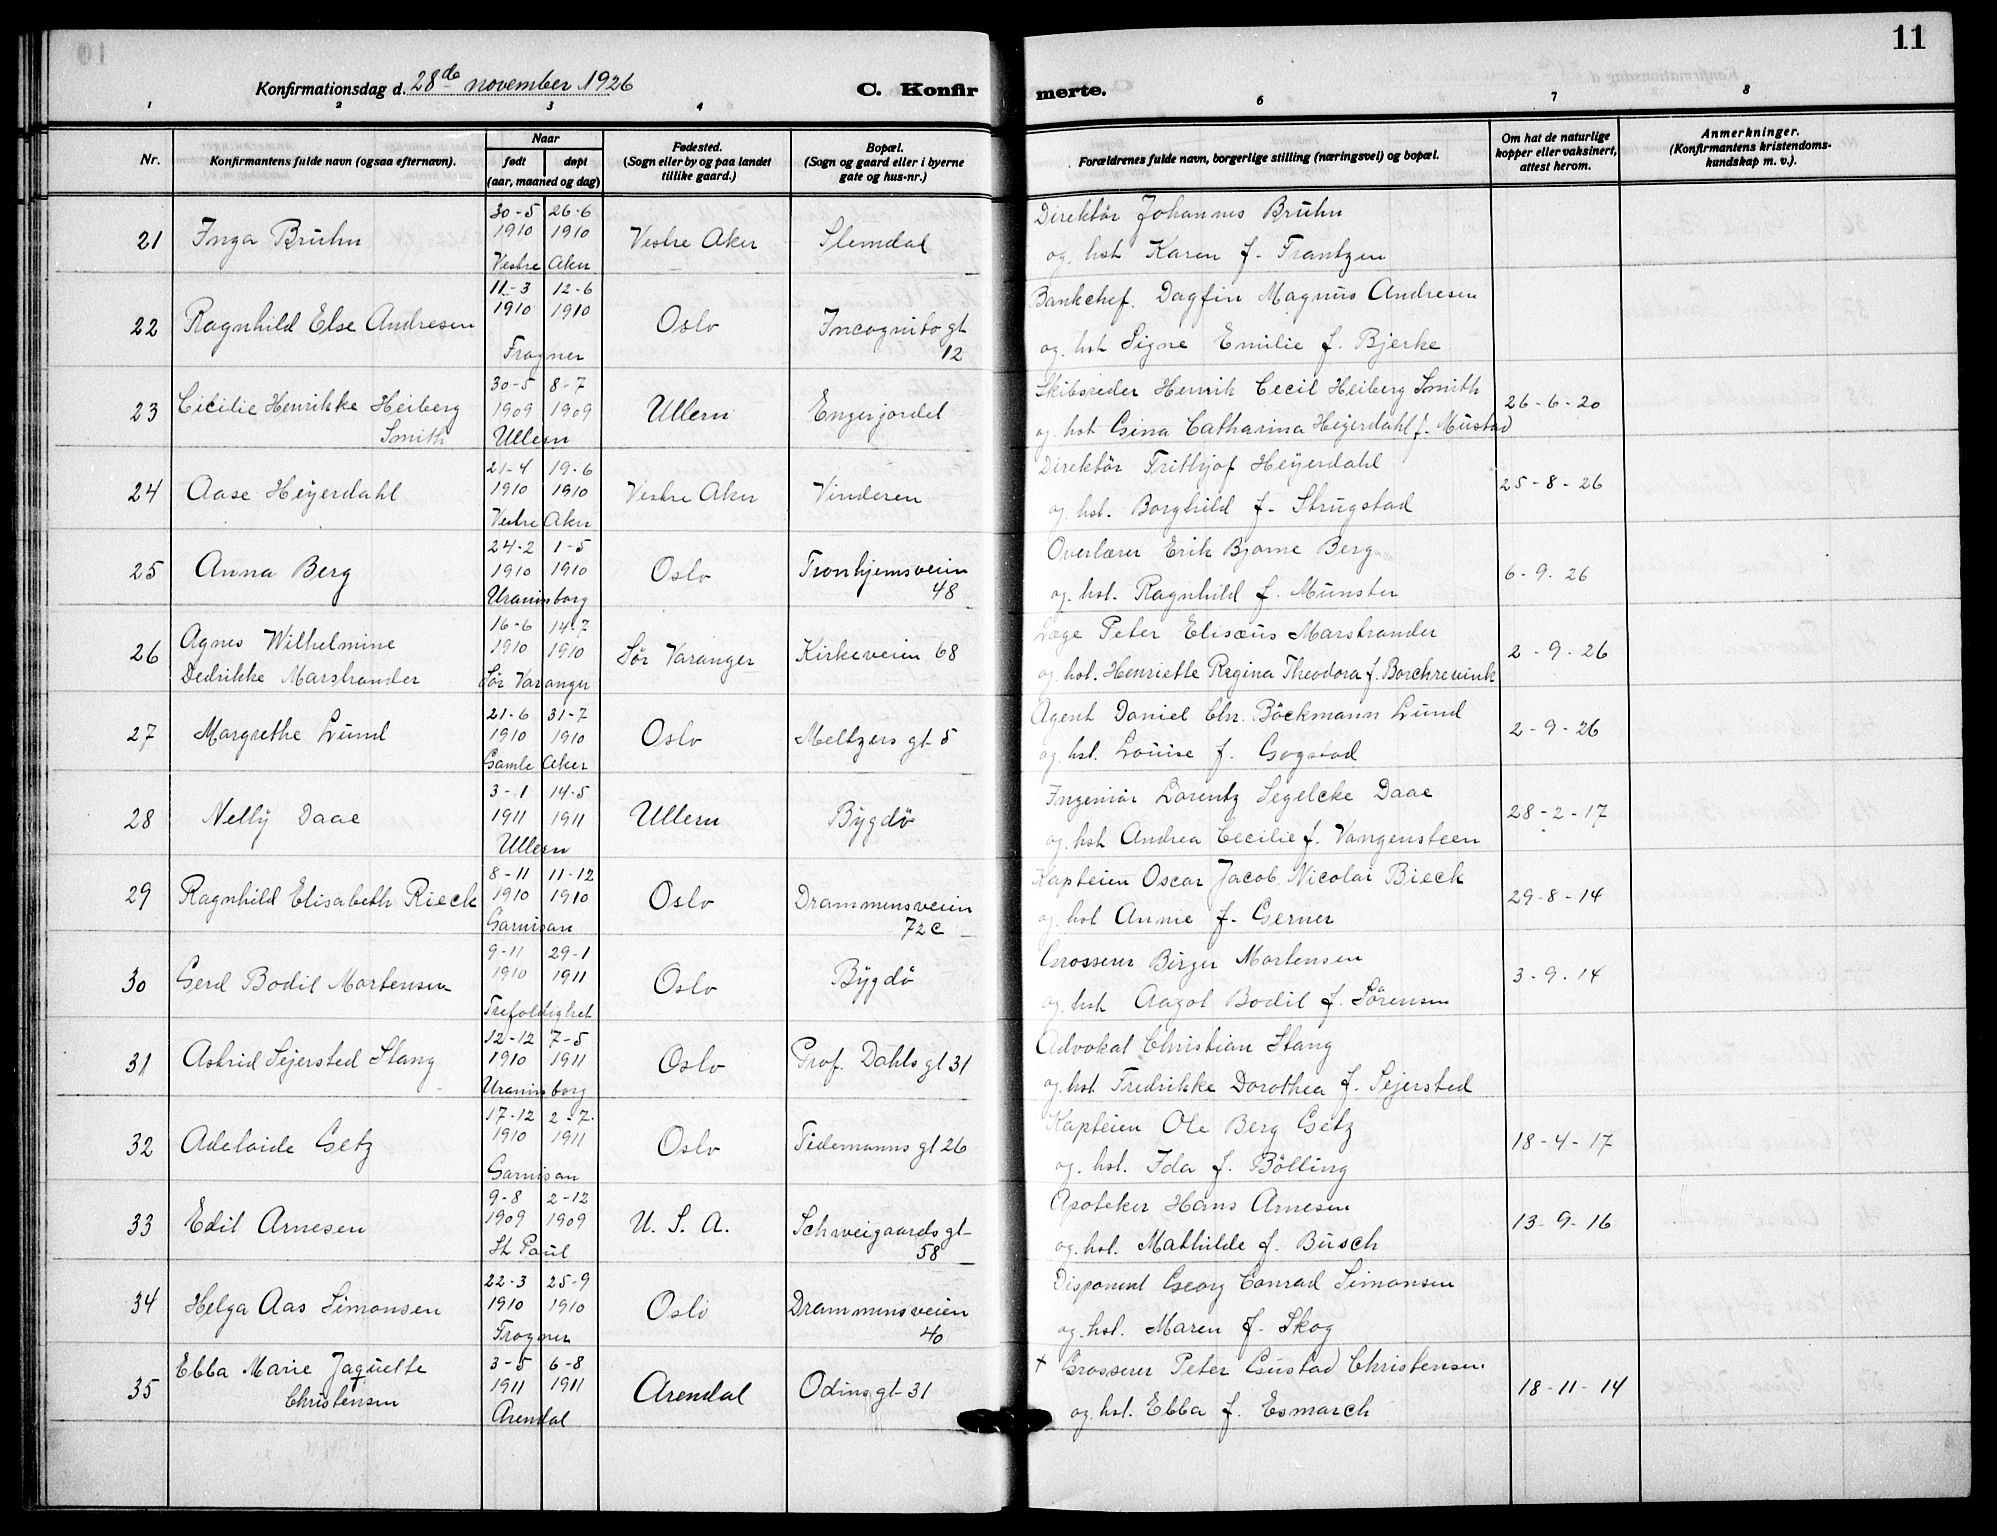 11
Konfirmationsdag d. 28de november 1926
C. Konfirmerte.
1 2 3 4 5 6 7 8
Nr.
Konfirmantens fulde navn (ogsaa efternavn).
Naar
født døpt
(aar, maaned og dag)
Fødested.
(Sogn eller by og paa landet
tillike gaard.)
Bopæl.
(Sogn og gaard eller i byerne
gate og hus-nr.)
Forældrenes fulde navn, borgerlige stilling (næringsvei) og bopæl.
Om hat de naturlige
kopper eller vaksinert,
attest herom.
Anmerkninger.
(Konfirmantens kristendoms-
kundskap m. v.).
21 Inga Bruhn
30-5 26-6
1910 1910
Vestre Aker
Vestre Aker
Slemdal
Direktör Johannes Bruhn
og hst Karen f. Frantzen
22 Ragnhild Else Andresen
11-3 12-6
1910 1910
Frogner
Oslo
Incognito gt
12
Bankchef. Dagfin Magnus Andresen
og. hst Signe Emilie f. Bjerke
23 Cicilie Henrikke Heiberg
Smith
30-5 8-7
1909 1909
Ullern
Ullern
Engerjordet
Skibsreder Henrik Cecil Heiberg Smith
og. hst Gina Catharina Heyerdahl f. Mustad
26-6-20
24 Aase Heyerdahl
21-4 19-6
1910 1910
Vestre Aker
Vestre Aker
Vinderen
Direktör Frithjof Heyerdahl
og. hst. Borghild f. Strugstad
25-8-26
25 Anna Berg
24-2 1-5
1910 1910
Uraninsborg
Oslo
Tronhjemsveien
48
Overlærer Erik Bjarne Berg
og. hst. Ragnhild f. Münster
6-9-26
26 Agnes Wilhelmine
Dedrikke Marstrander
16-6 14-7
1910 1910
Sör Varanger
Sör Varanger
Kirkeveien 68
Læge Peter Elisæus Marstrander
og. hst. Henriette Regina Theodora f. Borchrevink
2-9-26
27 Margrethe Lund
21-6 31-7
1910 1910
Gamle Aker
Oslo
Meltzers gt 5
Agent Daniel Chr. Böckmann Lund
og. hst. Louise f. Gogstad
2-9-26
28 Nelly Daae
3-1 14-5
1911 1911
Ullern
Ullern
Bygdö
Ingeniör Lorentz Segelcke Daae
og. hst Andrea Cecilie f. Vangensteen
28-2-17
29 Ragnhild Elisabeth Rieck
8-11 11-12
1910 1910
Garnison
Oslo
Drammensveien
72 c
Kaptein Oscar Jacob Nicolai Rieck
og. hst Annie f. Gerner
29-8-14
30 Gerd Bodil Mortensen
9-11 29-1
1910 1911
Trefoldighet
Oslo
Bygdö
Grosserer Birger Mortensen
og. hst Aagot Bodil f. Sörensen
3-9-14
31 Astrid Sejersted Stang
12-12 7-5
1910 1911
Uraninsborg
Oslo
Prof. Dahls gt 31
Advokat Christian Stang
og. hst Fredrikke Dorothea f. Sejersted
32 Adelaide Getz
17-12 2-7.
1910 1911
Garnison
Oslo
Tidemanns gt 26
Kaptein Ole Berg Getz
og. hst. Ida f. Bölling
18-4-17
33 Edit Arnesen
9-8 2-12
1909 1909
St Paul
U. S. A.
Schweigaards gt
58
Apoteker Hans Arnesen
og. hst. Mathilde f. Busch
13-9-16
34 Helga Aas Simonsen
22-3 25-9
1910 1910
Frogner
Oslo
Drammensveien
40
Disponent Georg Conrad Simonsen
og. hst. Maren f. Skog
35 Ebba Marie Jaquette
Christensen
3-5 6-8
1911 1911
Arendal
Arendal
Odins gt 31
+ Grosserer Peter Gustav Christensen
og. hst. Ebba f. Esmarch
18-11-14